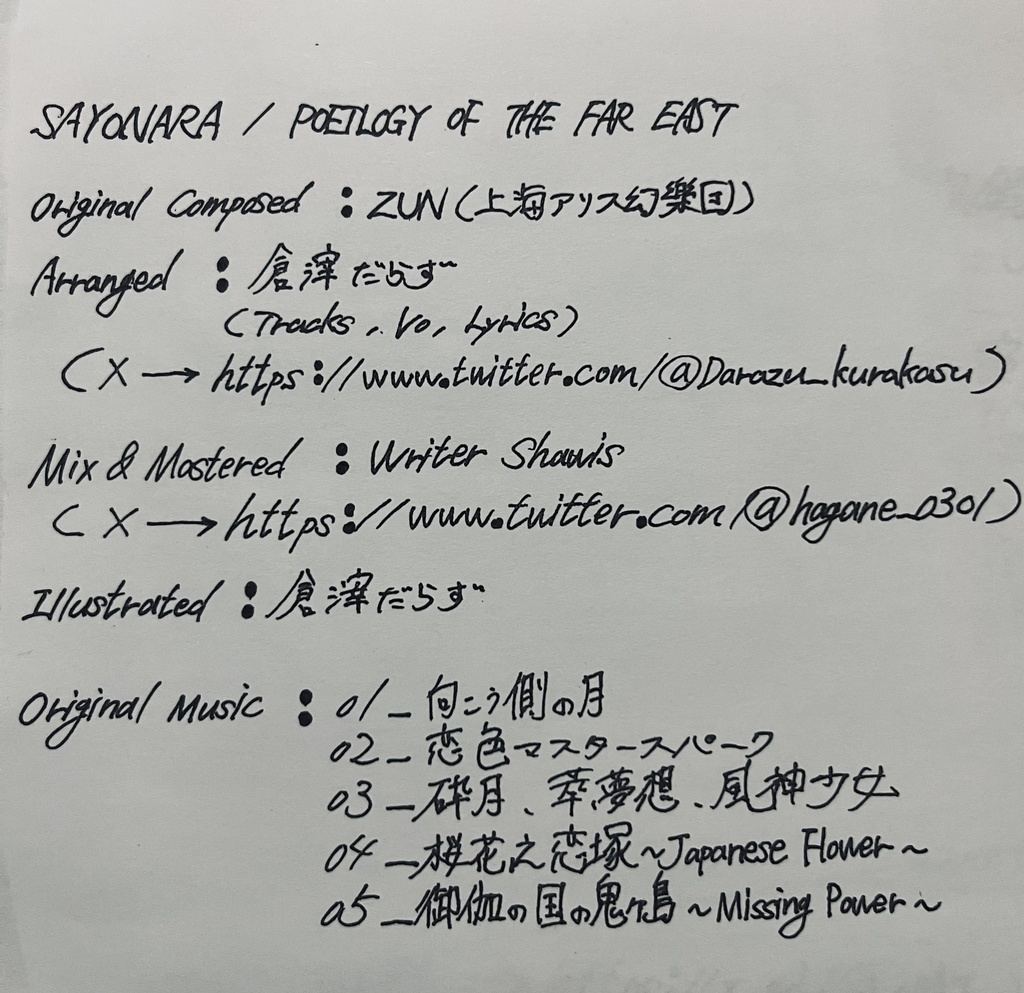 SAYONARA / POETLOGY OF THE FAR EAST
Original Composed : ZUN(上海アリス幻樂団)
Arranged : 倉滓だらず
(Tracks, Vo, Lyrics)
(X→https://www.twitter.com/@Darazu_kurakasu)
Mix & Mastered : Writer Shawis
(X→https://www.twitter.com/@hagane_0301)
Illustrated : 倉滓だらず
Original Music : 01_向こう側の月
02_恋色マスタースパーク
03_砕月、萃夢想、風神少女
04_桜花之恋塚~Japanese Flower~
05_御伽の国の鬼ヶ島~Missing Power~